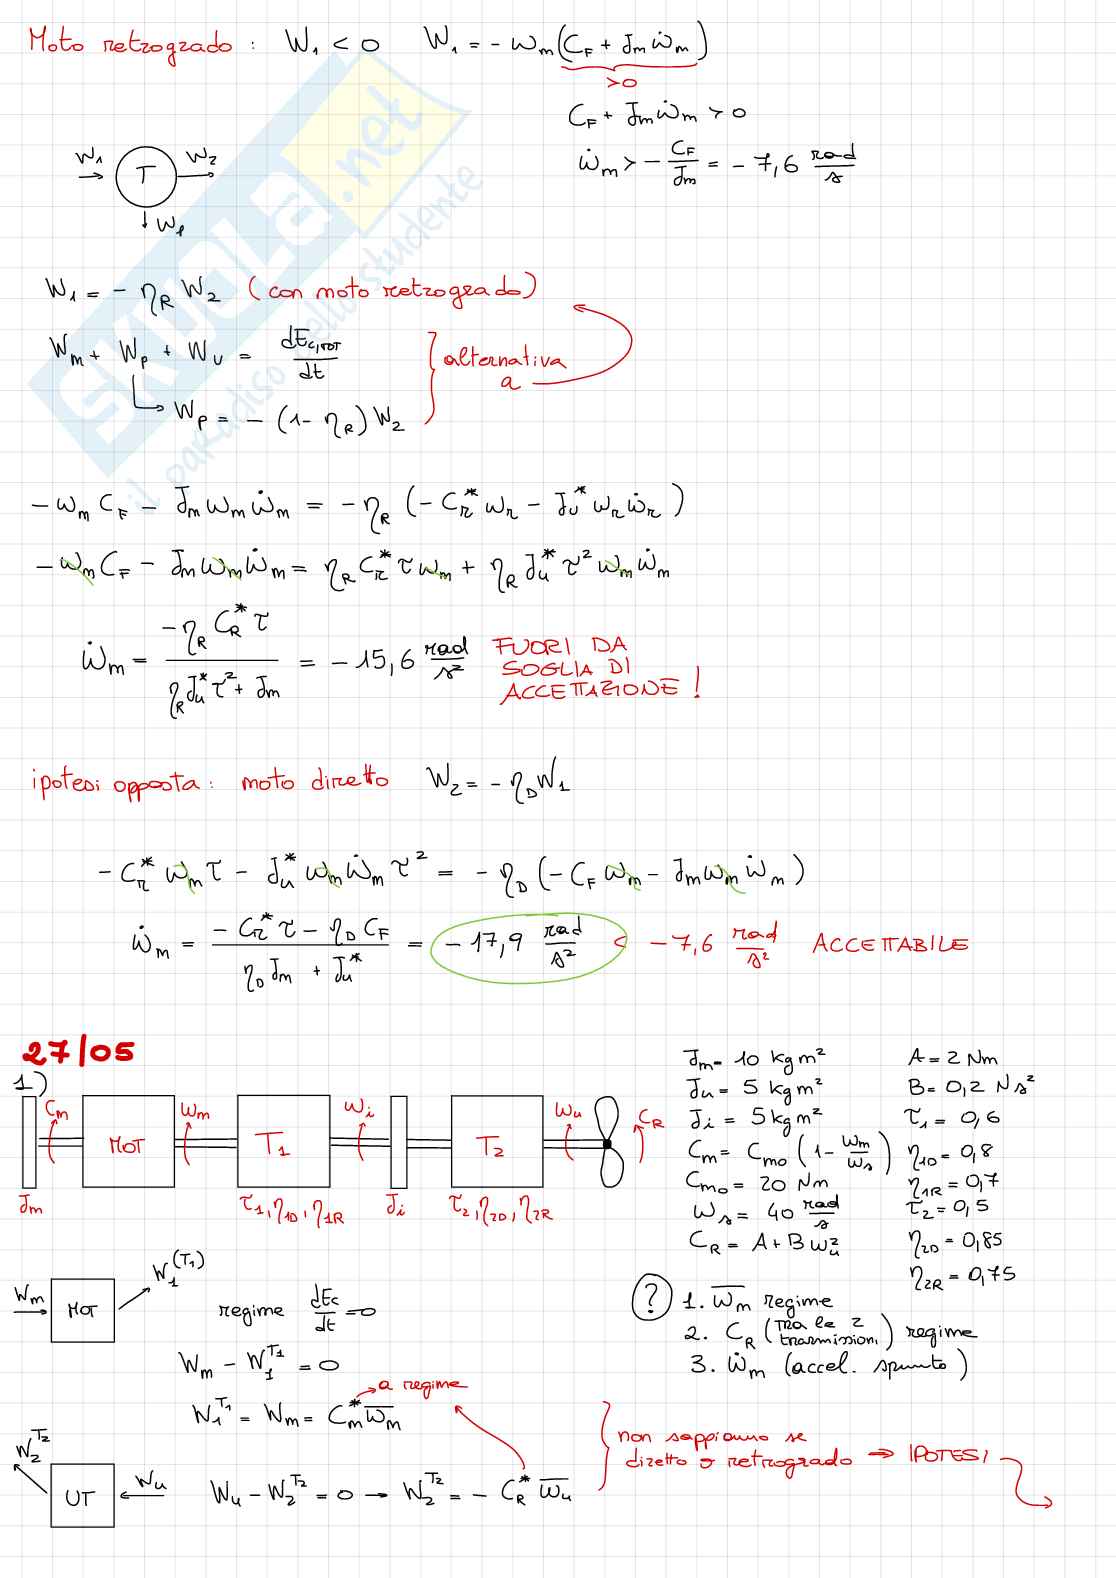 Moto retrogrado : W₁ < 0 W₁ = - ωm (C_F + Jm ω̇m)
>0
C_F + Jm ω̇m > 0
ω̇m > - C_F/Jm = - 7,6 rad/s
W₁ T W₂
W_p
W₁ = - η_R W₂ (con moto retrogrado)
W_m + W_p + W_U = dE_c,TOT/dt
alternativa
a
W_p = - (1 - η_R) W₂
- ωm C_F - Jm ωm ω̇m = - η_R (- C_r* ω_r - J_U* ω_r ω̇_r)
- ωm C_F - Jm ωm ω̇m = η_R C_r* τ ωm + η_R J_u* τ² ωm ω̇m
ω̇m = (- η_R C_R* τ)/(η_R J_u* τ² + Jm) = - 15,6 rad/s² FUORI DA
SOGLIA DI
ACCETTAZIONE !
ipotesi opposta : moto diretto W₂ = - η_D W₁
- C_r* ωm τ - J_u* ωm ω̇m τ² = - η_D (- C_F ωm - Jm ωm ω̇m)
ω̇m = (- C_r* τ - η_D C_F)/(η_D Jm + J_u*) = - 17,9 rad/s² < - 7,6 rad/s² ACCETTABILE
27/05
1)
Cm MOT ωm T₁ ωi T₂ ωu C_R
Jm τ₁, η₁D, η₁R Ji τ₂, η₂D, η₂R
Jm = 10 kg m² A = 2 Nm
Ju = 5 kg m² B = 0,2 N s²
Ji = 5 kg m² τ₁ = 0,6
Cm = Cmo (1 - ωm/ωs) η₁D = 0,8
Cmo = 20 Nm η₁R = 0,7
ωs = 40 rad/s τ₂ = 0,5
C_R = A + B ωu² η₂D = 0,85
η₂R = 0,75
Wm MOT W₁^(T₁)
regime dEc/dt = 0
Wm - W₁^T₁ = 0
a regime
W₁^T₁ = Wm = Cm* ω̄m
? 1. ω̄m regime
2. C_R (TRA le 2 trasmissioni) regime
3. ω̇m (accel. spunto)
W₂^T₂ UT Wu
Wu - W₂^T₂ = 0 → W₂^T₂ = - C_R* ω̄u
non sappiamo se
diretto o retrogrado ⇒ IPOTESI
SKUOLA.net
il paradiso dello studente